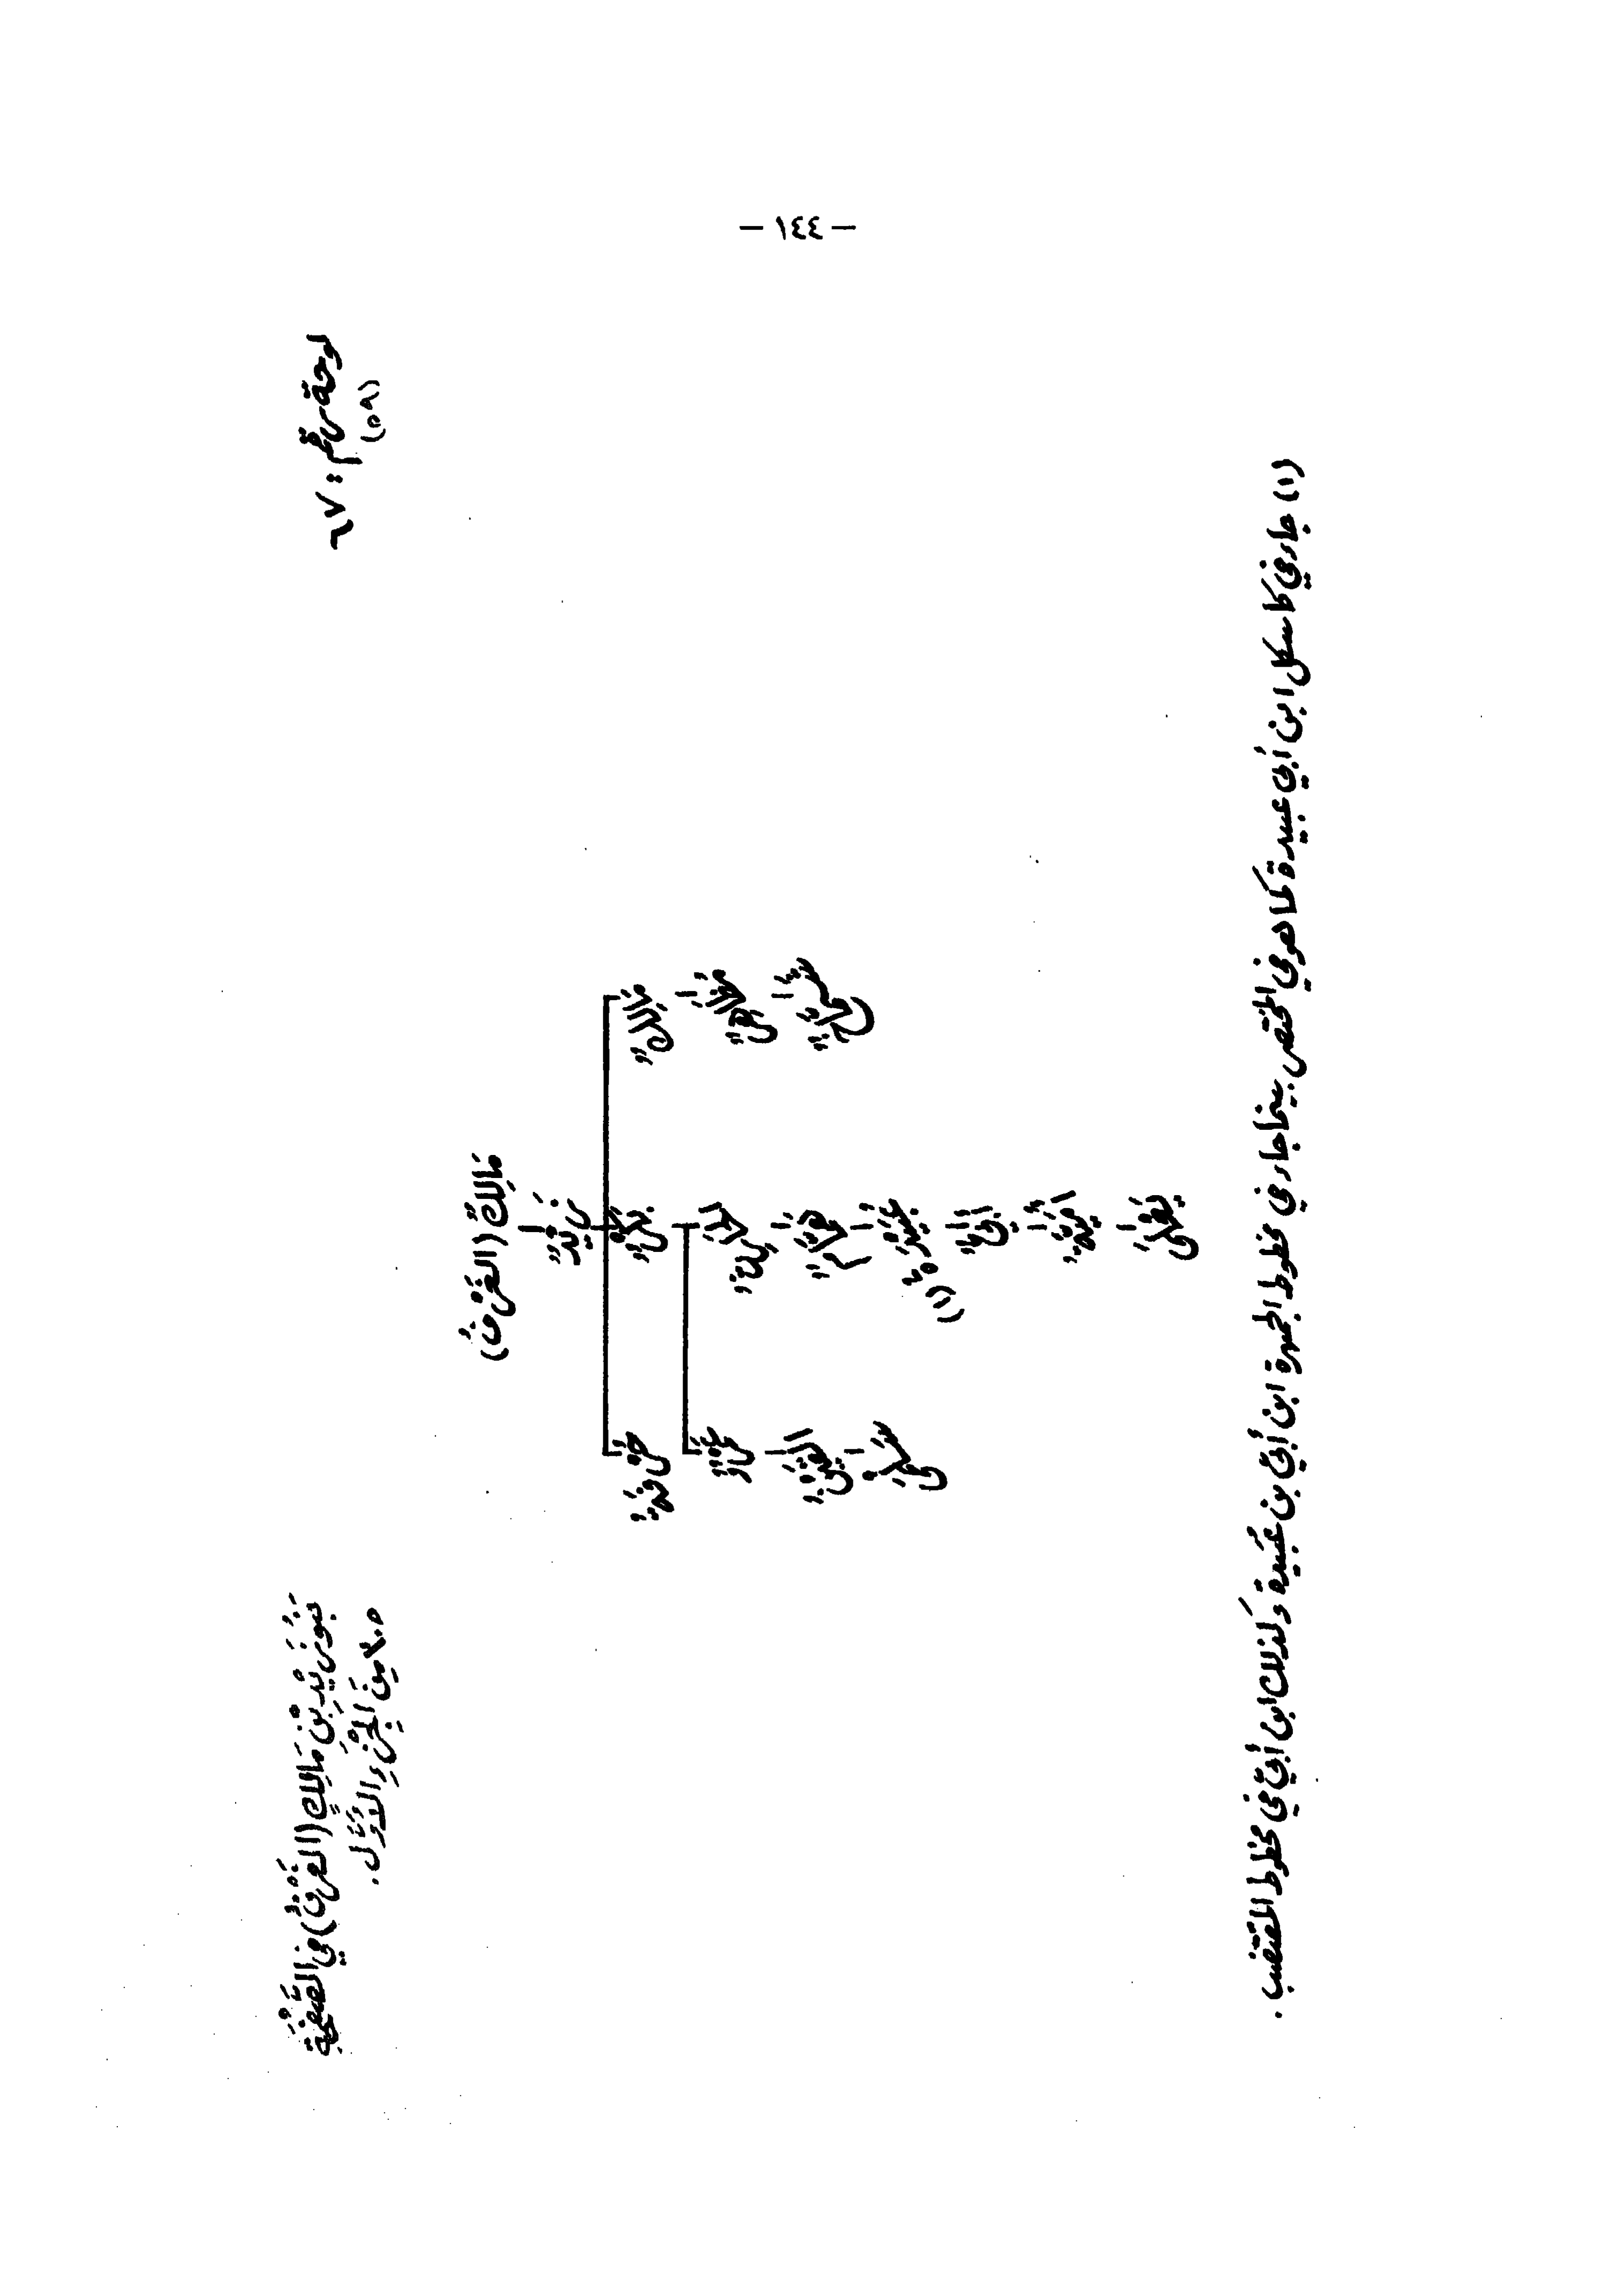 – ١٤٤ –
لوحة رقم: ٦٧
(٥٩)
بَنُو زَيْدِ بْنِ مَالِكٍ (الغَرْفُ) فِي الصَّفْحَةِ
٢٠٥ مِنَ الجُزْءِ الأَوَّلِ.
مَالِكٌ (الغَرْفُ)
زَيْدٌ
مَالِكٌ بَكْرٌ
الحَارِثُ عَمْرٌو
هَمَّامٌ القَيْنُ
عُبَيْدَةُ (١) سَلْمَى
أُبَيٌّ
أُمَيَّةُ
يَعْلَى
(١) جاء في كاسكل ابن أبي عبيدة كما هو في المختصر بينما جاء في مخطوط الجمهرة ابن أبيّ بن عُبَيدة وكذلك ابن أُبيّ في مخطوط المقتضب.